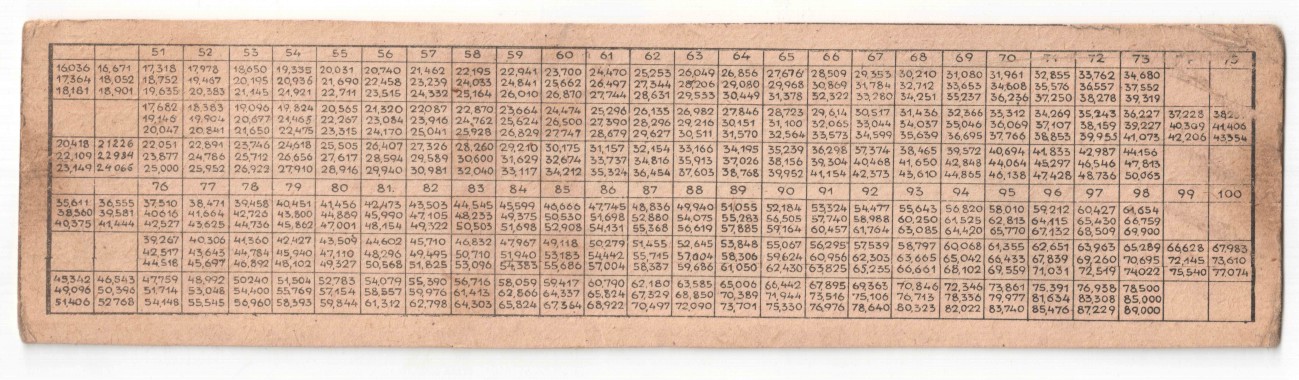 51 52 53 54 55 56 57 58 59 60 61 62 63 64 65 66 67 68 69 70 71 72 73 75
16036 16,671 17,318 17,978 18,650 19,335 20,031 20,740 21,462 22,195 22,941 23,700 24,470 25,253 26,049 26,856 27,676 28,509 29,353 30,210 31,080 31,961 32,855 33,762 34,680
17,364 18,052 18,752 19,467 20,195 20,936 21,690 22,458 23,239 24,033 24,841 25,662 26,497 27,344 28,206 29,080 29,968 30,869 31,784 32,712 33,653 34,608 35,576 36,557 37,552
18,161 18,901 19,635 20,383 21,145 21,921 22,711 23,515 24,332 25,164 26,010 26,870 27,744 28,631 29,533 30,449 31,378 32,322 33,280 34,251 35,237 36,236 37,250 38,278 39,319
17,682 18,383 19,096 19,824 20,565 21,320 22,087 22,870 23,664 24,474 25,296 26,135 26,982 27,846 28,723 29,614 30,517 31,436 32,366 33,312 34,269 35,243 36,227 37,228
19,146 19,904 20,677 21,465 22,267 23,084 23,916 24,762 25,624 26,500 27,390 28,296 29,216 30,151 31,100 32,065 33,044 34,037 35,046 36,069 37,107 38,159 39,227 40,309 41,406
20,047 20,841 21,650 22,475 23,315 24,170 25,041 25,928 26,829 27,747 28,679 29,627 30,511 31,570 32,564 33,573 34,599 35,639 36,695 37,766 38,853 39,955 41,073 42,206 43354
20,418 21226 22,051 22,891 23,746 24,618 25,505 26,407 27,326 28,260 29,210 30,175 31,157 32,154 33,166 34,195 35,239 36,298 37,374 38,465 39,572 40,694 41,833 42,987 44,156
22,109 22984 23,877 24,786 25,712 26,656 27,617 28,594 29,589 30,600 31,629 32,674 33,737 34,816 35,913 37,026 38,156 39,304 40,468 41,650 42,848 44,064 45,297 46,546 47,813
23,149 24066 25,000 25,952 26,922 27,910 28,916 29,940 30,981 32,040 33,117 34,212 35,324 36,454 37,603 38,768 39,952 41,154 42,373 43,610 44,865 46,138 47,428 48,736 50,063
76 77 78 79 80 81. 82 83 84 85 86 87 88 89 90 91 92 93 94 95 96 97 98 99 100
35,611 36,555 37,510 38,471 39,458 40,451 41,456 42,473 43,503 44,545 45,599 46,666 47,745 48,836 49,940 51,055 52,184 53,324 54,477 55,643 56,820 58,010 59,212 60,427 61,654
38,560 39,581 40,616 41,664 42,726 43,800 44,889 45,990 47,105 48,233 49,375 50,530 51,698 52,880 54,075 55,283 56,505 57,740 58,988 60,250 61,525 62,813 64,115 65,430 66,759
40,375 41,444 42,527 43,625 44,736 45,862 47,001 48,154 49,322 50,503 51,698 52,908 54,131 55,368 56,619 57,885 59,164 60,457 61,764 63,085 64,420 65,770 67,132 68,509 69,900
39,267 40,306 41,360 42,427 43,509 44,602 45,710 46,832 47,967 49,118 50,279 51,455 52,645 53,848 55,067 56,295 57,539 58,797 60,068 61,355 62,651 63,963 65,289 66,628 67,983
42,517 43,643 44,784 45,940 47,110 48,296 49,495 50,710 51,940 53,183 54,442 55,715 57,004 58,306 59,624 60,956 62,303 63,665 65,042 66,433 67,839 69,260 70,695 72,145 73,610
44,518 45,697 46,892 48,102 49,327 50,568 51,825 53,096 54,383 55,686 57,004 58,337 59,686 61,050 62,430 63,825 65,235 66,661 68,102 69,559 71,031 72,519 74022 75,540 77074
45,342 46,543 47,759 48,992 50240 51,504 52,783 54,079 55,390 56,716 58,059 59417 60,790 62,180 63,585 65,006 66,442 67,895 69,363 70,846 72,346 73,861 75,391 76,938 78,500
49,096 50,396 51,714 53,048 54,400 55,769 57,154 58,557 59,976 61,413 62,866 64,337 65,824 67,329 68,850 70,389 71,944 73,516 75,106 76,713 78,336 79,977 81,634 83,308 85,000
51,406 52768 54,148 55,545 56,960 58,393 59,844 61,312 62,798 64,303 65,824 67,364 68,922 70,497 72,090 73,701 75,330 76,976 78,640 80,323 82,022 83,740 85,476 87,229 89,000